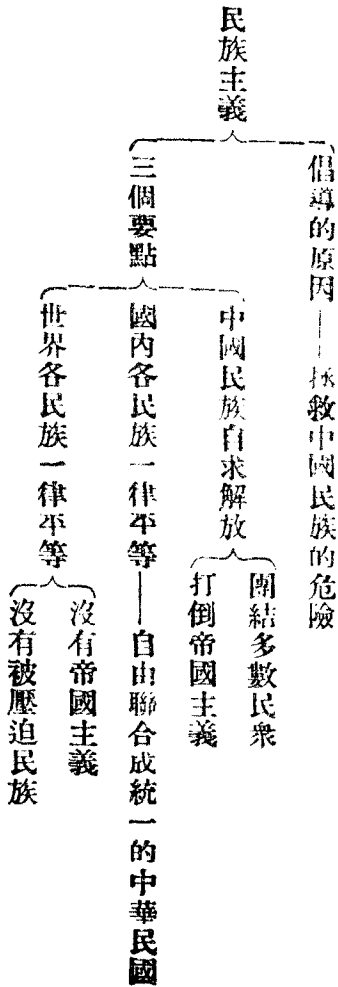 民族主義
倡導的原因——拯救中國民族的危險
三個要點
中國民族自求解放
團結多數民衆
打倒帝國主義
國內各民族一律平等——自由聯合成統一的中華民國
世界各民族一律平等
沒有帝國主義
沒有被壓迫民族